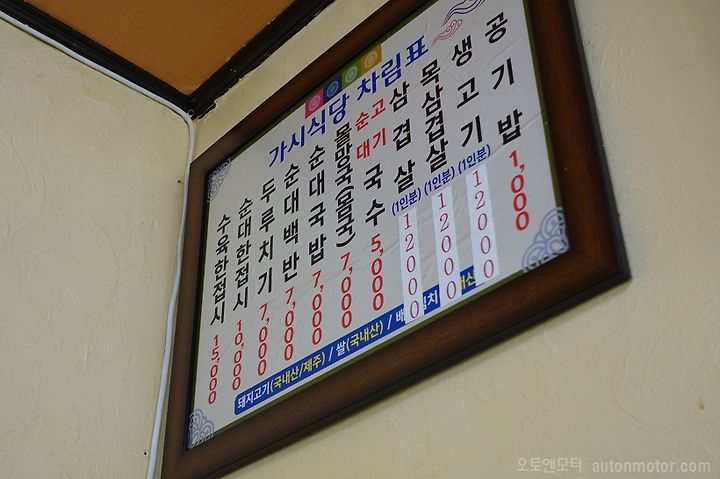 가시식당 차림표
수육한접시 15,000
순대한접시 10,000
두루치기 7,000
순대백반 7,000
순대국밥 7,000
몰망국(몸국) 7,000
고기
순대 국수 5,000
삼겹살 (1인분) 12000
목삼겹살 (1인분) 12000
생고기 (1인분) 12000
공기밥 1,000
돼지고기(국내산/제주) / 쌀(국내산) / 배
오토앤모터 autonmotor.com